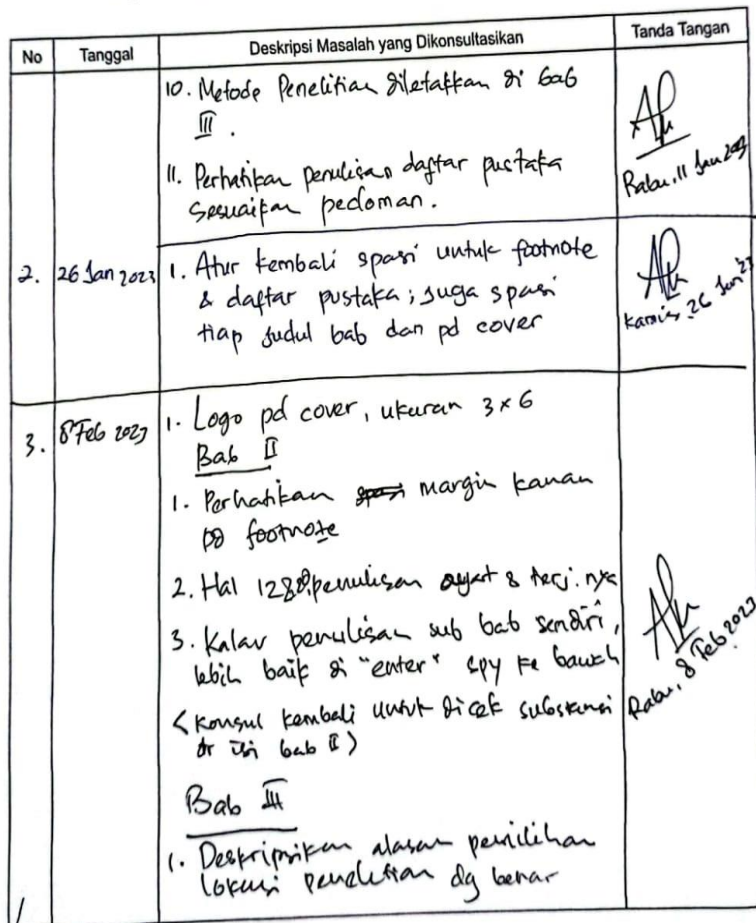 No Tanggal Deskripsi Masalah yang Dikonsultasikan Tanda Tangan
10. Metode Penelitian diletakkan di bab
III.
11. Perhatikan penulisan daftar pustaka
sesuaikan pedoman.
Rabu, 11 Jan 2023
2. 26 Jan 2023 1. Atur kembali spasi untuk footnote
& daftar pustaka; juga spasi
tiap judul bab dan pd cover
Kamis 26 Jan '23
3. 8 Feb 2023 1. Logo pd cover, ukuran 3 x 6
Bab II
1. Perhatikan margin kanan
pd footnote
2. Hal 12 penulisan ayat & terj. nya
3. Kalau penulisan sub bab sendiri,
lebih baik di "enter" spy ke bawah
<Konsul kembali untuk dicek substansi
dr isi bab II>
Rabu, 8 Feb 2023
Bab III
1. Deskripsikan alasan pemilihan
lokasi penelitian dg benar